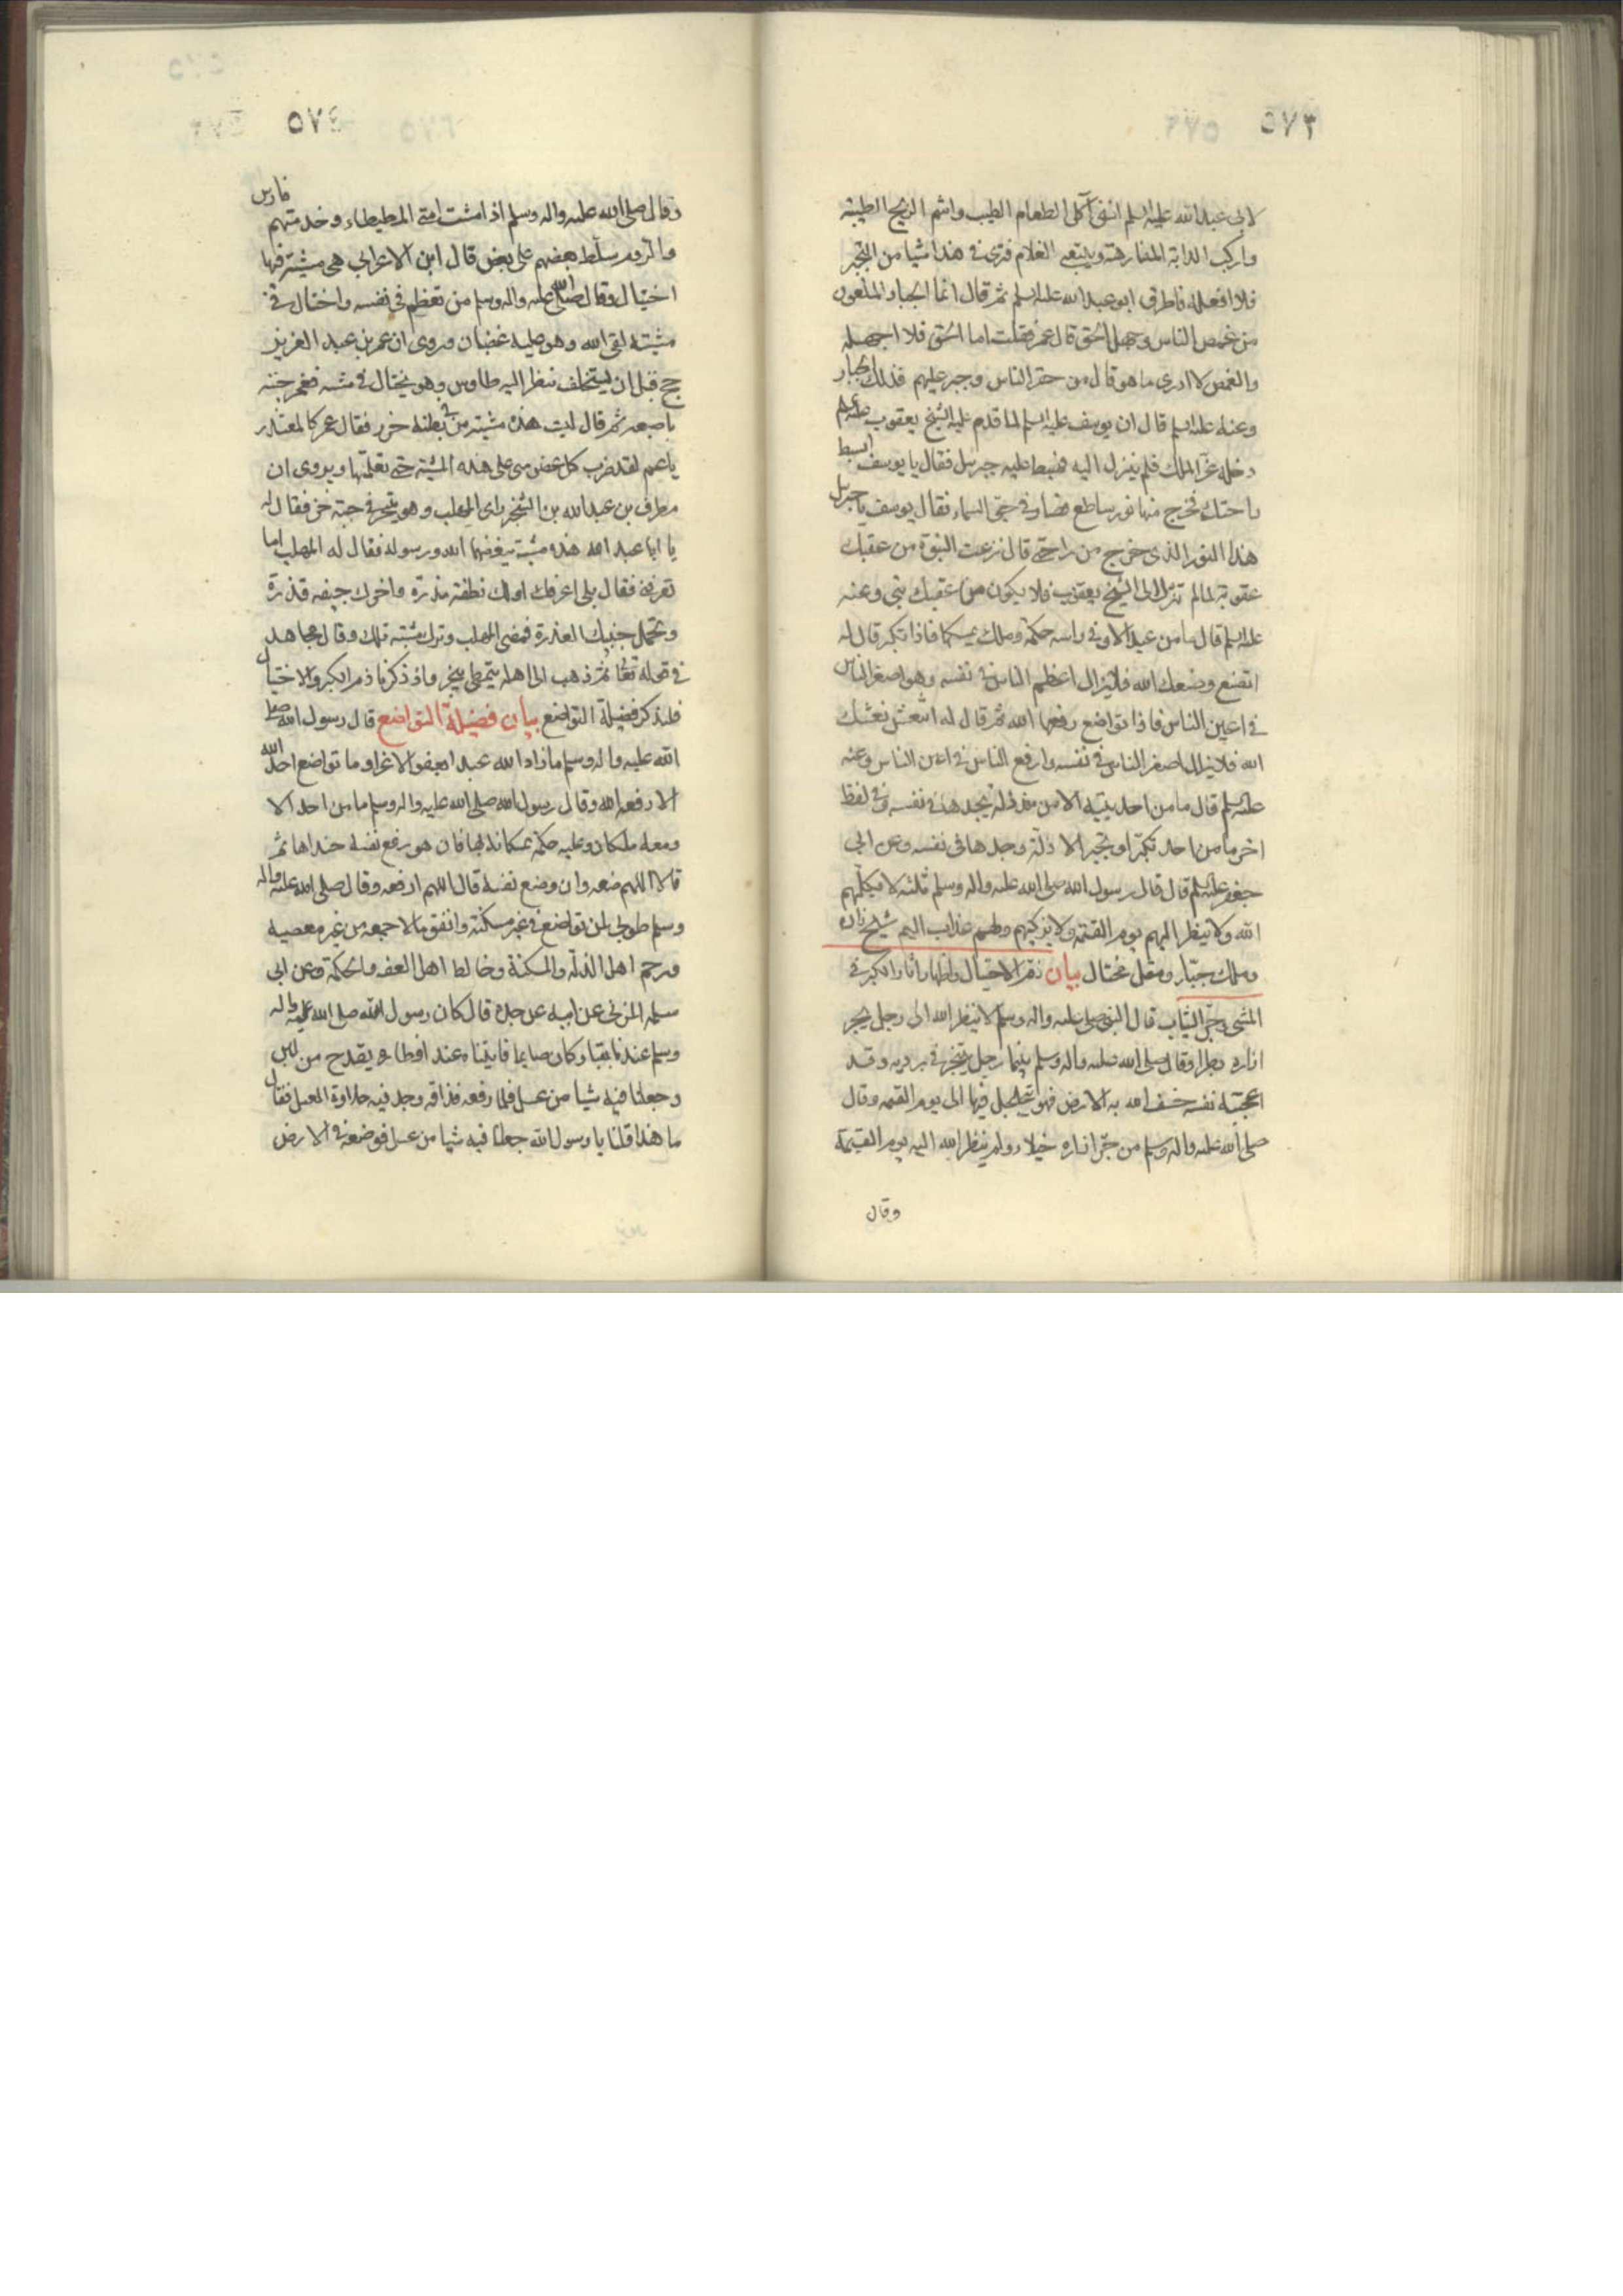 ٥٧٣
لابى عبد الله عليه السلم اننى آكل الطعام الطيب واشم الريح الطيبة
واركب الدابة الفارهة ويتبعنى الغلام فترى فى هذا شيا من التجبر
فلا افعله فاطرق ابو عبد الله عليه السلم ثم قال انما الجبار الملعون
من غمص الناس وجهل الحق قال عمر فقلت اما الحق فلا اجهله
والغمص لا ادرى ما هو قال من حقر الناس وجبر عليهم فذلك الجبار
وعنه عليه السلم قال ان يوسف عليه السلم لما قدم عليه الشيخ يعقوب عليه السلم
دخله عز الملك فلم ينزل اليه فهبط عليه جبرئيل فقال يا يوسف ابسط
راحتك فخرج منها نور ساطع فصار فى جو السماء فقال يوسف يا جبرئيل
هذا النور الذى خرج من راحتى قال نزعت النبوة من عقبك
عقوبة لما لم تنزل الى الشيخ يعقوب فلا يكون من عقبك نبى وعنه
عليه السلم قال ما من عبد الا وفى راسه حكمة وملك يمسكها فاذا تكبر قال له
اتضع وضعك الله فلا يزال اعظم الناس فى نفسه وهو اصغر الناس
فى اعين الناس فاذا تواضع رفعها الله ثم قال له انتعش نعشك
الله فلا يزال اصغر الناس فى نفسه وارفع الناس فى اعين الناس وعنه
عليه السلم قال ما من احد يتيه الا من ذلة يجدها فى نفسه وفى لفظ
اخر ما من احد تكبر او تجبر الا ذلة وجدها فى نفسه وعن ابى
جعفر عليه السلم قال قال رسول الله صلى الله عليه واله وسلم ثلثة لا يكلمهم
الله ولا ينظر اليهم يوم القيمة ولا يزكيهم ولهم عذاب اليم شيخ زان
وملك جبار ومقل مختال بيان ذم الاختيال واظهار اثار الكبر فى
المشى وجر الثياب قال النبى صلى عليه واله وسلم لا ينظر الله الى رجل يجر
ازاره بطرا وقال صلى الله عليه واله وسلم بينما رجل يتبختر فى برديه وقد
اعجبته نفسه خسف الله به الارض فهو يتجلجل فيها الى يوم القيمه وقال
صلى الله عليه واله وسلم من جر ازاره خيلاء لم ينظر الله اليه يوم القيمة
وقال
٥٧٤
وقال صلى الله عليه واله وسلم اذا مشت امتى المطيطاء وخدمتهم فارس
والروم سلط بعضهم على بعض قال ابن الاعرابى هى مشية فيها
اختيال وقال صلى الله عليه واله وسلم من تعظم فى نفسه واختال فى
مشيته لقى الله وهو عليه غضبان وروى ان عمر بن عبد العزيز
حج قبل ان يستخلف فنظر اليه طاوس وهو يختال فى مشيه فغمز جنبه
باصبعه ثم قال ليت هذه مشية من فى بطنه خرء فقال عمر كالمعتذر
يا عم لقد ضرب كل عضو منى على هذه المشية حتى تعلمتها ويروى ان
مطرف بن عبد الله بن الشخير راى المهلب وهو يتبختر فى جبة خز فقال له
يا ابا عبد الله هذه مشية يبغضها الله ورسوله فقال له المهلب اما
تعرفنى فقال بلى اعرفك اولك نطفة مذرة واخرك جيفه قذرة
وتحمل جنبيك العذرة فمضى المهلب وترك مشيته تلك وقال مجاهد
فى قوله تعالى ثم ذهب الى اهله يتمطى يتبختر واذ ذكرنا ذم الكبر والاختيال
فلنذكر فضيلة التواضع بيان فضيلة التواضع قال رسول الله صلى
الله عليه واله وسلم ما زاد الله عبدا بعفو الا عزا وما تواضع احد لله
الا رفعه الله وقال رسول الله صلى الله عليه واله وسلم ما من احد الا
ومعه ملكان وعليه حكمة يمسكانه بها فان هو رفع نفسه جبذاها ثم
قالا اللهم ضعه وان وضع نفسه قالا اللهم ارفعه وقال صلى الله عليه واله
وسلم طوبى لمن تواضع فى غير مسكنة وانفق مالا جمعه من غير معصيه
ورحم اهل الذلة والمسكنة وخالط اهل الفقه والحكمة وعن ابى
سلمه المزنى عن ابيه عن جده قال كان رسول الله صلى الله عليه واله
وسلم عندنا بقبا وكان صايما فاتيناه عند افطاره بقدح من لبن
وجعلنا فيه شيا من عسل فلما رفعه فذاقه وجد فيه حلاوة العسل فقال
ما هذا قلنا يا رسول الله جعلنا فيه شيا من عسل فوضعه فى الارض